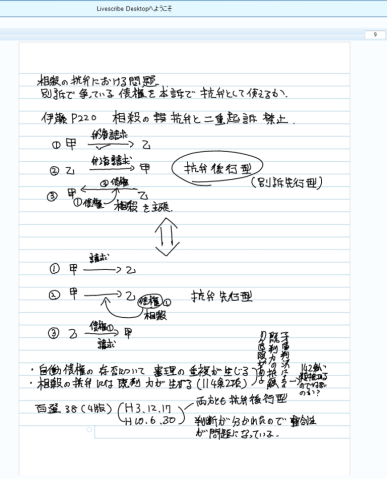 Livescribe Desktopへようこそ
9
相殺の抗弁における問題
別訴で争っている債権を本訴で抗弁として使えるか.
伊藤 P220 相殺の 抗弁と二重起訴禁止.
① 甲 弁済請求 → 乙
② 乙 弁済請求 → 甲 抗弁後行型
(別訴先行型)
③ 甲 ② 債権 乙
①債権 相殺を主張.
① 甲 請求 → 乙
② 甲 → 乙 債権② 抗弁先行型
相殺
③ 乙 債権① → 甲
請求
・自働債権の存否について審理の重複が生じる
・相殺の抗弁には既判力が生ずる(114条2項)
矛盾判決による
既判力の抵触
の可能性がある
142類推
百選 38 (4版) (H3.12.17
H10.6.30)
両方とも抗弁後行型
判断が分かれたので整合性
が問題になっている.